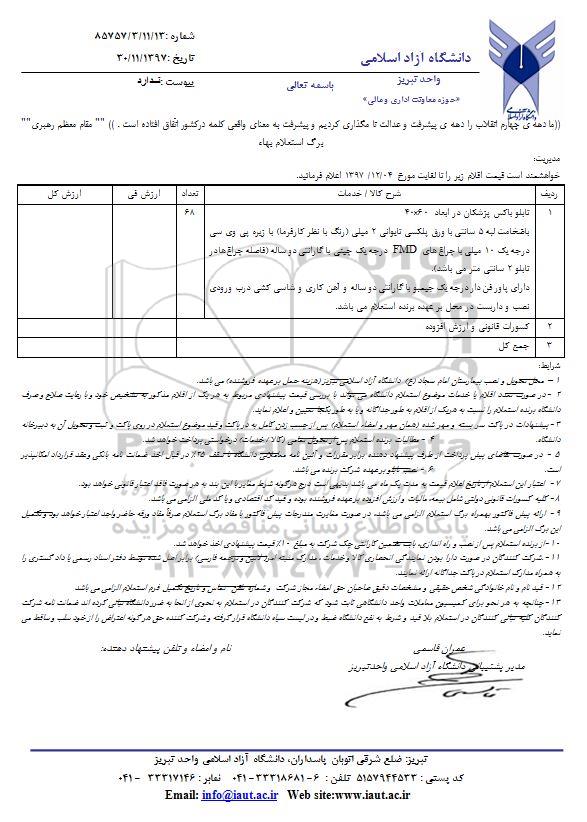 شماره :۸۵۷۵۷/۳/۱۱/۱۳
دانشگاه آزاد اسلامی
تاریخ :۳۰/۱۱/۱۳۹۷
واحد تبریز
پیوست :ندارد
باسمه تعالی
«حوزه معاونت اداری ومالی»
((ما دهه ی چهارم انقلاب را دهه ی پیشرفت و عدالت نا مگذاری کردیم و پیشرفت به معنای واقعی کلمه درکشور اتّفاق افتاده است . )) "" مقام معظم رهبری""
برگ استعلام بهاء
مدیریت:
خواهشمند است قیمت اقلام زیر را تا لغایت مورخ ۱۳۹۷/۱۲/۰۴ اعلام فرمائید.
ردیف شرح کالا / خدمات تعداد ارزش فی ارزش کل
۱ تابلو باکس پزشکان در ابعاد ۶۰×۴۰ ۶۸
باضخامت لبه ۵ سانتی با ورق پلکسی تایوانی ۲ میلی (رنگ با نظر کارفرما) با زیره پی وی سی
درجه یک ۱۰ میلی با چراغ های FMD درجه یک چینی با گارانتی دو ساله (فاصله چراغ‌ها در
تابلو ۲ سانتی متر می باشد).
دارای پاور فن دار درجه یک جیمبو با گارانتی دو ساله و آهن کاری و شاسی کشی درب ورودی
نصب و داربست در محل بر عهده برنده استعلام می باشد.
۲ کسورات قانونی و ارزش افزوده
۳ جمع کل
شرایط:
۱ – محل تحویل و نصب بیمارستان امام سجاد (ع) دانشگاه آزاد اسلامی تبریز (هزینه حمل بر عهده فروشنده) می باشد.
۲ – در صورت تعدد اقلام یا خدمات موضوع استعلام دانشگاه می تواند با بررسی قیمت پیشنهادی مربوط به هر یک از اقلام مذکور به تشخیص خود و با رعایت صلاح و صرف
دانشگاه برنده استعلام را نسبت به هریک از اقلام به طور جداگانه و یا به طور یکجا تعیین و اعلام نماید.
۳ -پیشنهادات در پاکت سر بسته و مهر شده (همان مهر و امضاء استعلام) پس از چسب زدن کامل به در پاکت و قید موضوع استعلام در روی پاکت و ثبت و تحویل آن به دبیرخانه
دانشگاه. ۴ - مطالبات برنده استعلام پس از تحویل تمامی (کالا/ خدمات) درخواستی پرداخت خواهد شد.
۵ – در صورت تقاضای پیش پرداخت از طرف پیشنهاد دهنده برابر مقررات و آئین نامه معاملاتی دانشگاه تا سقف ۲۵٪ در قبال اخذ ضمانت نامه بانکی وعقد قرارداد امکانپذیر
است. ۶ – نصب تابلو برعهده شرکت برنده می باشد.
۷ – اعتبار این استعلام از تاریخ اعلام قیمت به مدت یک ماه می باشد بدیهی است درج هرگونه شرط مغایر با این بند به هر صورت فاقد اعتبار قانونی خواهد بود.
۸ -کلیه کسورات قانونی دولتی شامل بیمه، مالیات و ارزش افزوده برعهده فروشنده بوده و قید کد اقتصادی و یا کد ملی الزامی می باشد.
۹ – ارائه پیش فاکتور بهمراه برگ استعلام الزامی می باشد، در صورت مغایرت مندرجات پیش فاکتور با مفاد برگ استعلام صرفاً مفاد ورقه حاضر واجد اعتبار خواهد بود و تکمیل
این برگ الزامی می باشد.
۱۰ -از برنده استعلام پس از نصب و راه اندازی، بابت تضمین گارانتی چک شرکت به مبلغ ۱۰٪ قیمت پیشنهادی اخذ خواهد شد.
۱۱-شرکت کنندگان در صورت دارا بودن نمایندگی انحصاری کالا وخدمات ، مدارک مثبته امر (لاتین و ترجمه فارسی) برابر اصل شده توسط دفتر اسناد رسمی یا دادگستری را
به همراه مدارک استعلام در پاکت جداگانه ارائه نمایند.
۱۲- قید نام و نام خانوادگی شخص حقیقی و مشخصات دقیق صاحبان حق امضاء مجاز شرکت و شماره تلفن تماس و تاریخ تکمیل فرم استعلام الزامی می باشد
۱۳-چنانچه به هر نحو برای کمیسیون معاملات واحد دانشگاهی ثابت شود که شرکت کنندگان در استعلام به نحوی از انحا به ضرر دانشگاه تبانی کرده اند ضمانت نامه شرکت
کنندگان کلیه تبانی کنندگان در استعلام بلا قید و شرط به نفع دانشگاه ضبط و در لیست سیاه دانشگاه قرار گرفته و شرکت کننده حق هر گونه اعتراض را از خود سلب و ساقط می
نماید.
عمران قاسمی نام و امضاء و تلفن پیشنهاد دهنده:
مدیر پشتیبانی دانشگاه آزاد اسلامی واحد تبریز
پایگاه اطلاع رسانی مناقصه و مزایده
۰۲۱-۸۸۳۴۹۶۷۰-۸
تبریز: ضلع شرقی اتوبان پاسداران، دانشگاه آزاد اسلامی واحد تبریز
کد پستی : ۵۱۵۷۹۴۴۵۳۳ تلفن : ۶-۳۳۳۱۸۶۸۱-۰۴۱ نمابر : ۳۳۳۱۷۱۴۶ -۰۴۱
Email: info@iaut.ac.ir Web site:www.iaut.ac.ir